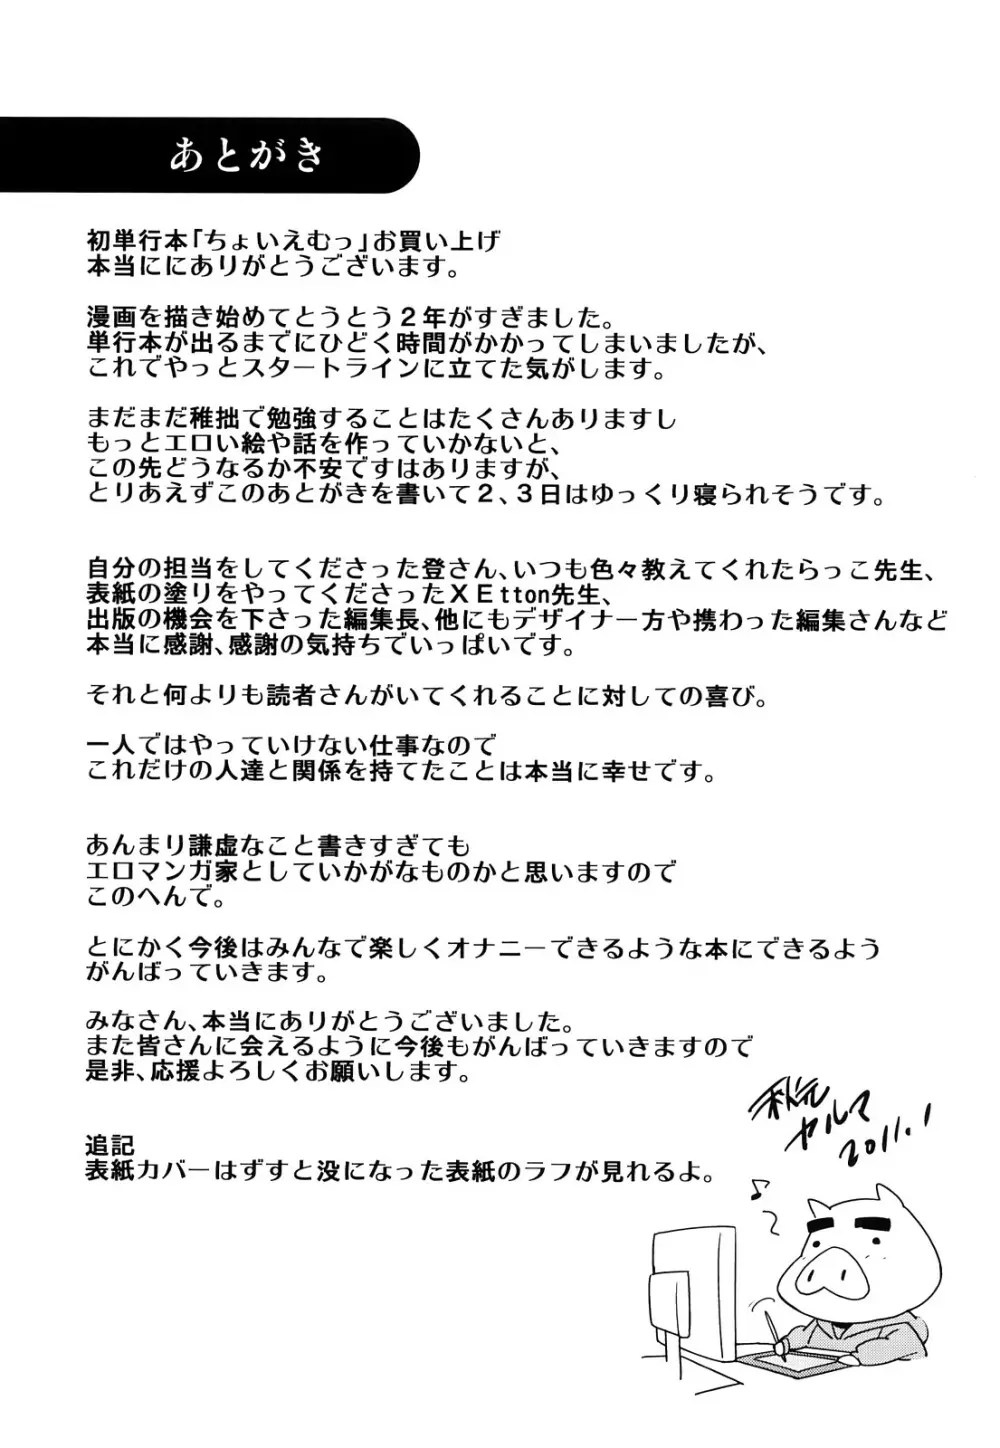 あとがき
初単行本「ちょいえむっ」お買い上げ
本当ににありがとうございます。
漫画を描き始めてとうとう２年がすぎました。
単行本が出るまでにひどく時間がかかってしまいましたが、
これでやっとスタートラインに立てた気がします。
まだまだ稚拙で勉強することはたくさんありますし
もっとエロい絵や話を作っていかないと、
この先どうなるか不安ですはありますが、
とりあえずこのあとがきを書いて２、３日はゆっくり寝られそうです。
自分の担当をしてくださった登さん、いつも色々教えてくれたらっこ先生、
表紙の塗りをやってくださったＸＥtton先生、
出版の機会を下さった編集長、他にもデザイナー方や携わった編集さんなど
本当に感謝、感謝の気持ちでいっぱいです。
それと何よりも読者さんがいてくれることに対しての喜び。
一人ではやっていけない仕事なので
これだけの人達と関係を持てたことは本当に幸せです。
あんまり謙虚なこと書きすぎても
エロマンガ家としていかがなものかと思いますので
このへんで。
とにかく今後はみんなで楽しくオナニーできるような本にできるよう
がんばっていきます。
みなさん、本当にありがとうございました。
また皆さんに会えるように今後もがんばっていきますので
是非、応援よろしくお願いします。
秋元
ヤルマ
2011.1
追記
表紙カバーはずすと没になった表紙のラフが見れるよ。